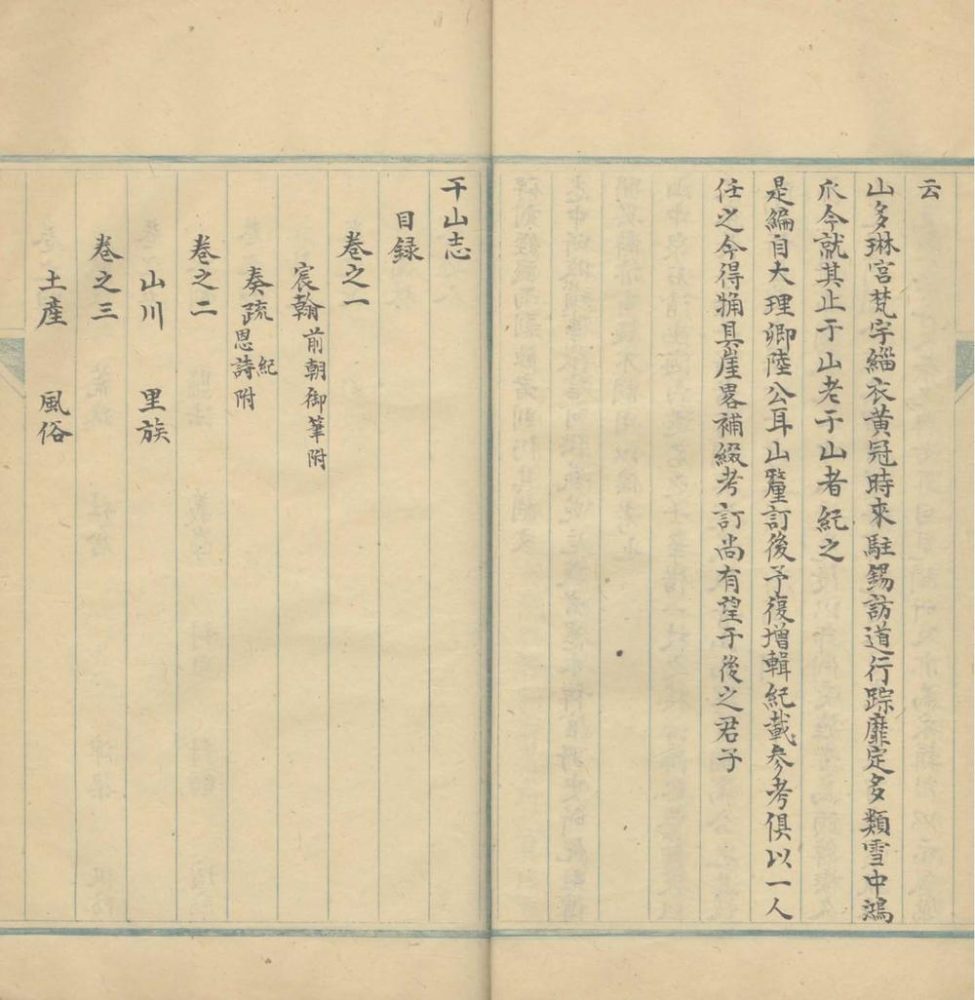 云
山多琳宮梵字緇衣黄冠時來駐錫訪道行踪靡定多類雪中鴻
爪今就其止于山老于山者紀之
是編自大理卿陸公耳山釐訂後予復增輯紀載參考俱以一人
任之今得觕具崖畧補綴考訂尚有望于後之君子
干山志
目録
卷之一
宸翰 前朝御筆附
奏疏 紀恩詩附
卷之二
山川 里族
卷之三
土產 風俗